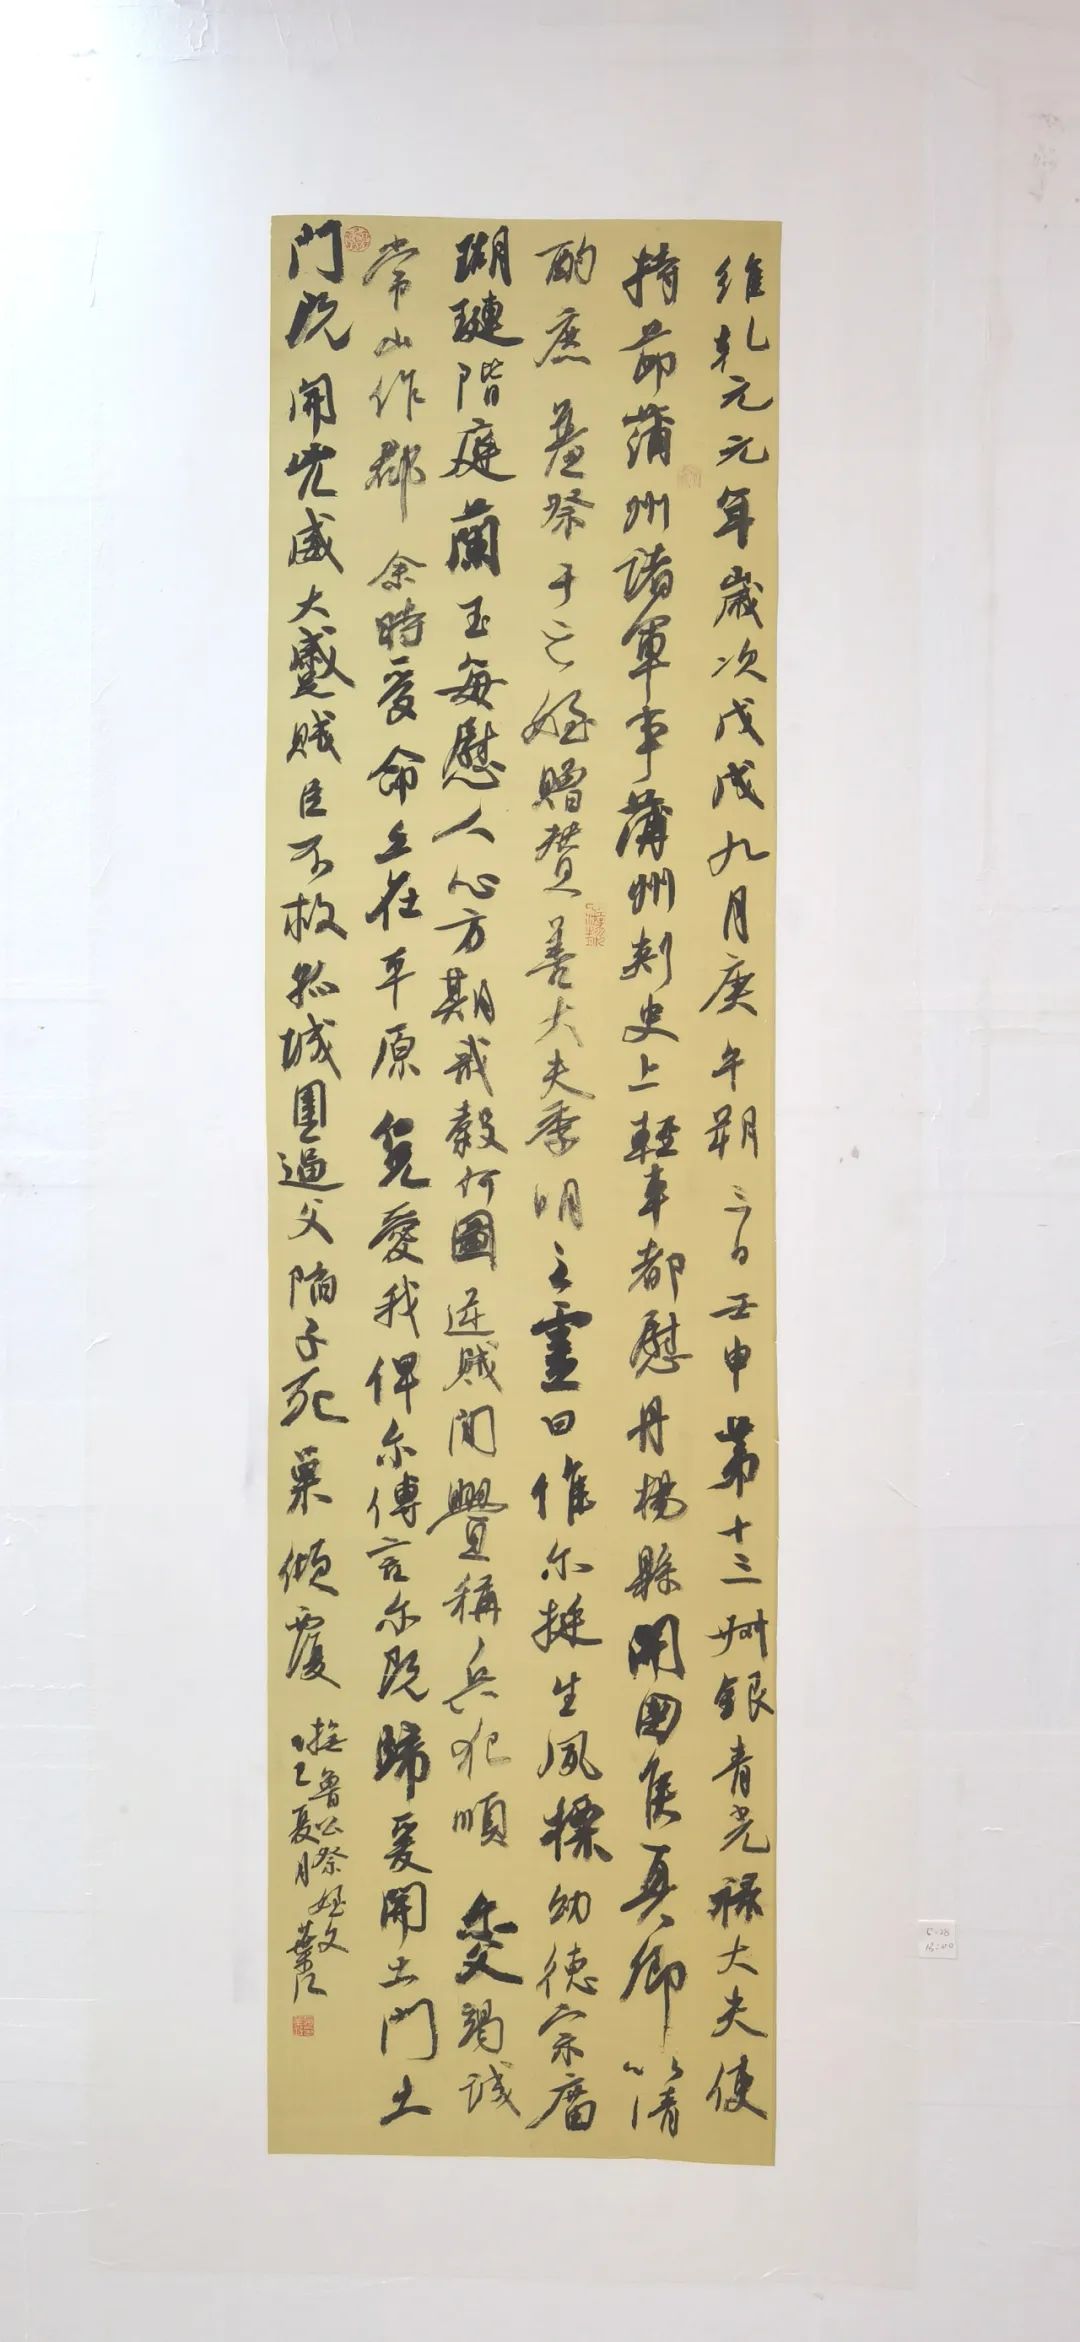 維乾元元年歲次戊戌九月庚午朔三日壬申第十三州銀青光祿大夫使
持節蒲州諸軍事蒲州刺史上輕車都慰丹楊縣開國侯真卿以清
酌庶羞祭于亡姪贈贊善大夫季明之靈曰惟尔挺生夙標幼德宗廟
瑚璉階庭蘭玉每慰人心方期戩穀何圖逆賊閒釁稱兵犯順尔父竭誠
常山作郡余時受命立在平原仁兄愛我俾尔傳言尔既歸爰開土門土
門既開兇威大蹙賊臣不救孤城圍逼父陷子死巢傾覆
撫魯公祭姪文
乙巳夏月
5-28